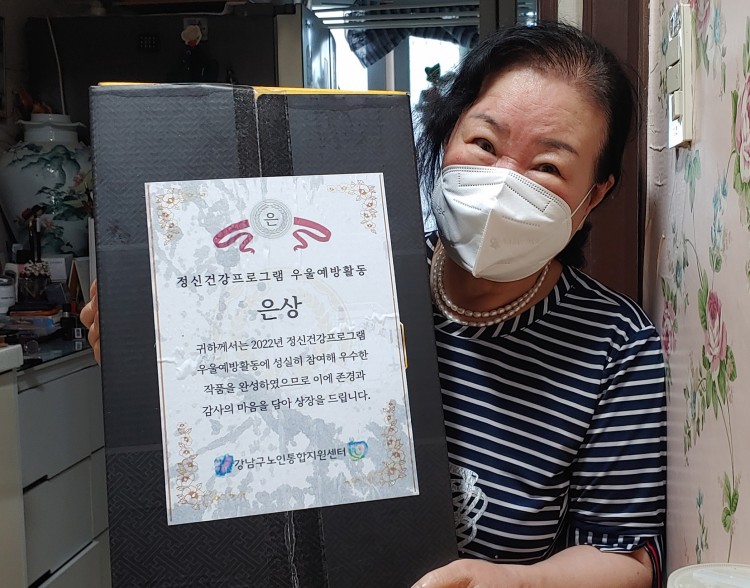 은
정신건강프로그램 우울예방활동
은상
귀하께서는 2022년 정신건강프로그램
우울예방활동에 성실히 참여해 우수한
작품을 완성하였으므로 이에 존경과
감사의 마음을 담아 상장을 드립니다.
강남구노인통합지원센터